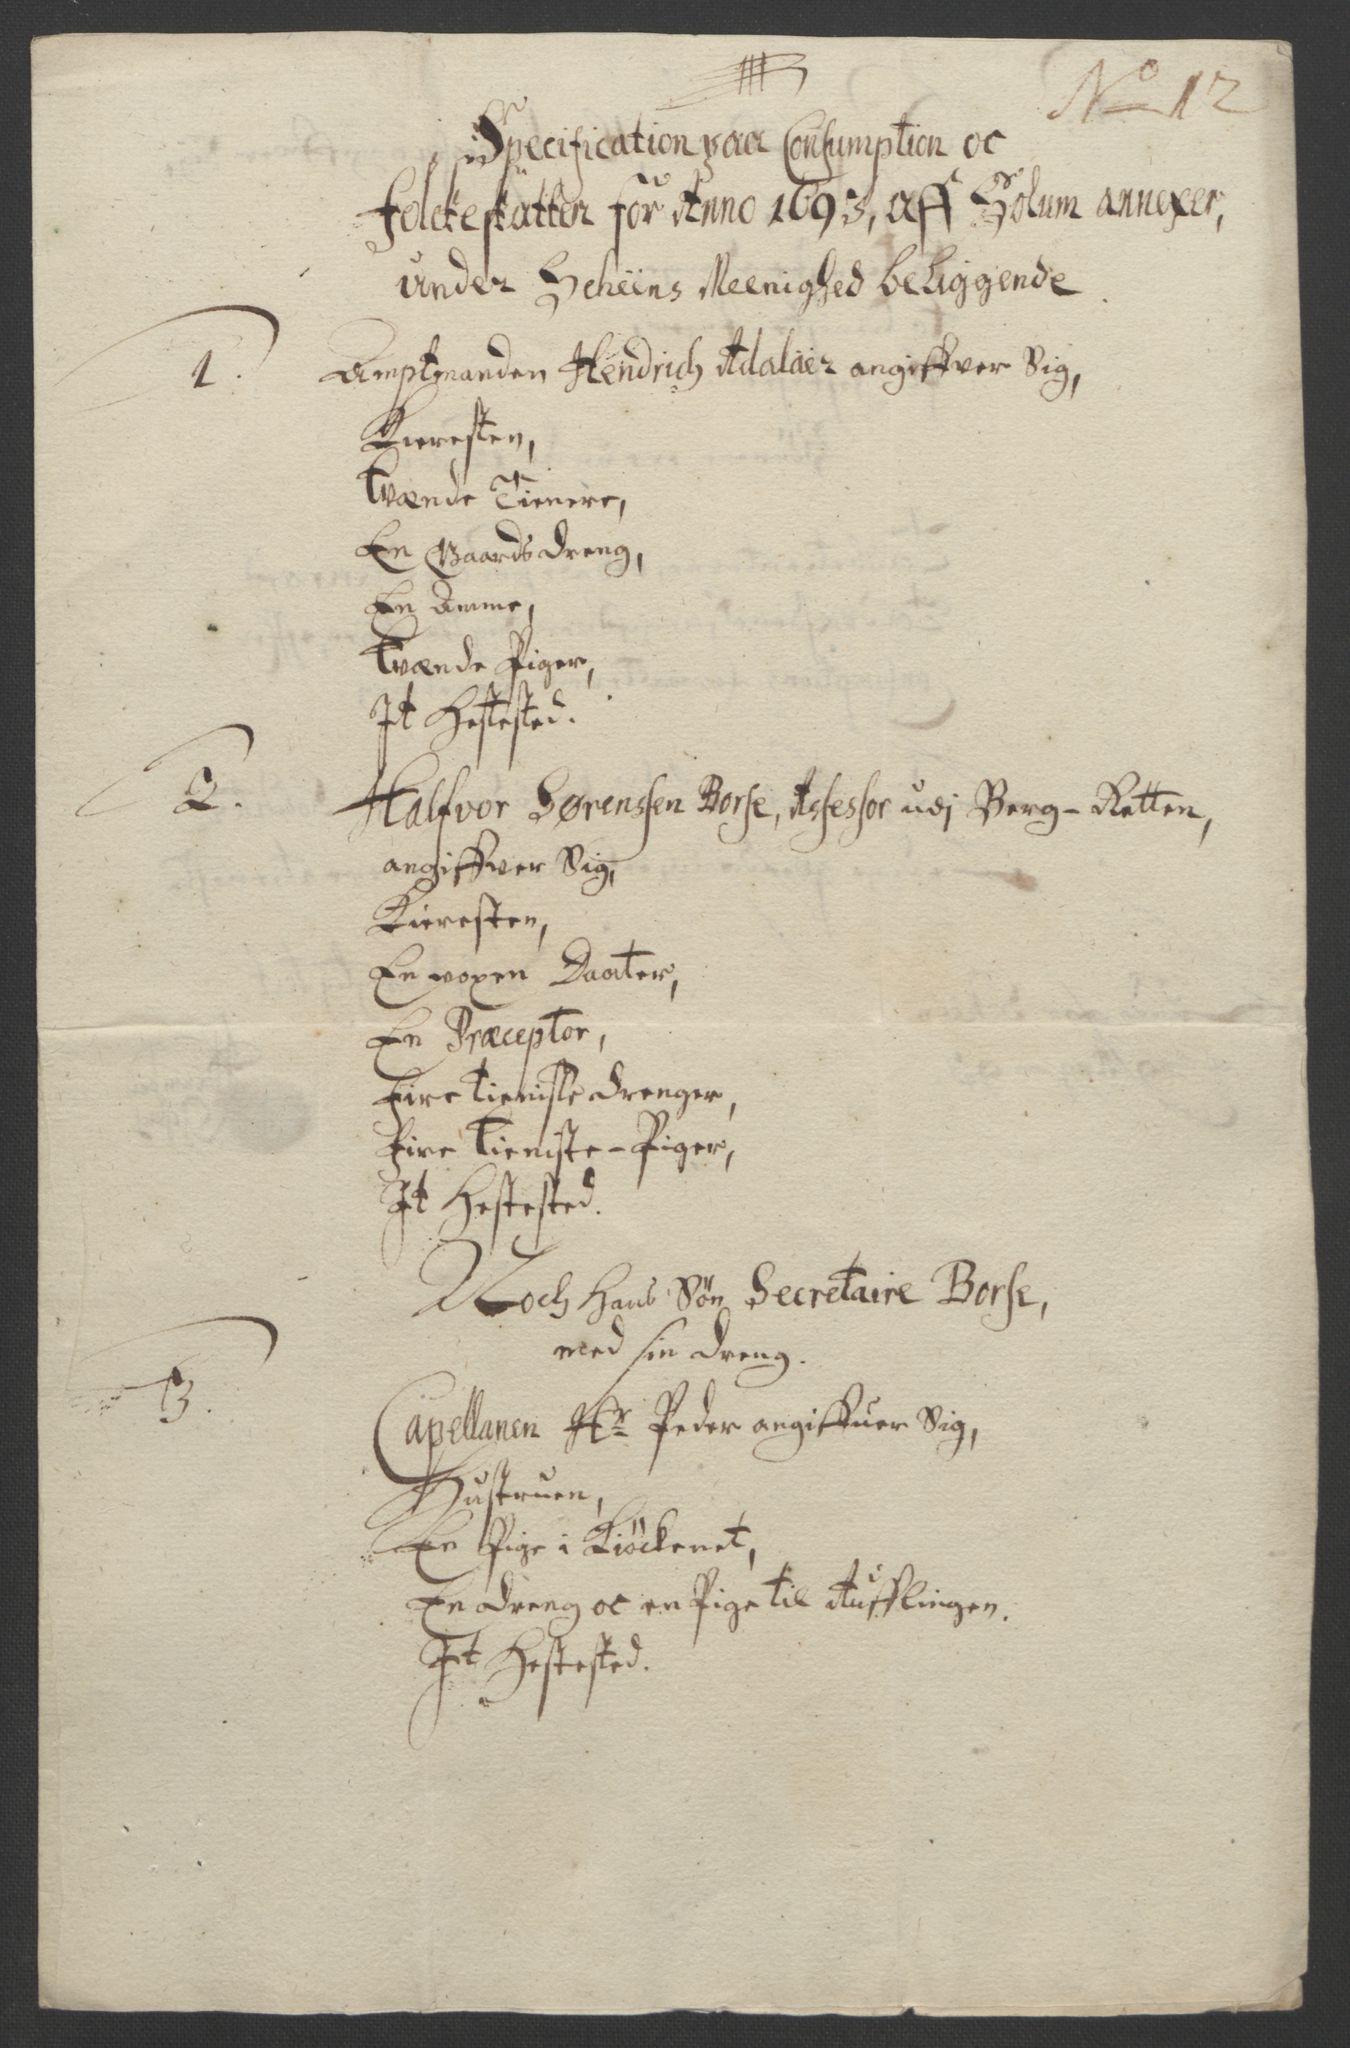 No 12
Specification paa Consumption oc
Folckeskatten for Anno 1693, aff Solum annexer,
under Scheens Meenighed beliggende
1. Amptmanden Hendrich Adalaer angiffver Sig,
Kieresten,
Tvænde Tienere,
En Gaardsdreng,
En Amme,
Tvænde Piger,
It Hestested.
2. Halfvor Sørenssen Borse, Assessor udj Berg-Retten,
angiffver Sig,
Kieresten,
En voxen Daater,
En Præceptor,
Fire Tieniste drenger,
Fire Tieniste-Piger,
It Hestested.
Noch Hans Sön Secretaire Borse,
med sin dreng.
3. Capellanen Hr Peder angiffuer Sig,
Hustruen,
En Pige i Kiöckenet,
En dreng oc en Pige til Aufflingen.
It Hestested.